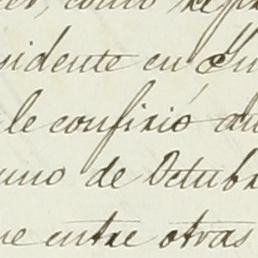 como
sidente en
le confirió
uno de Octub
ue entre otras